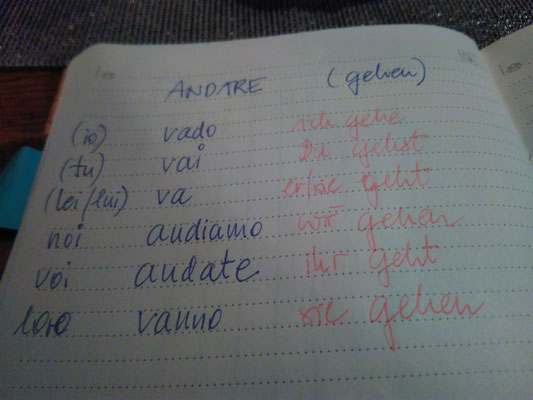 ANDARE (gehen)
(io) vado ich gehe
(tu) vai Du gehst
(lei/lui) va er/sie geht
noi andiamo wir gehen
voi andate ihr geht
loro vanno sie gehen